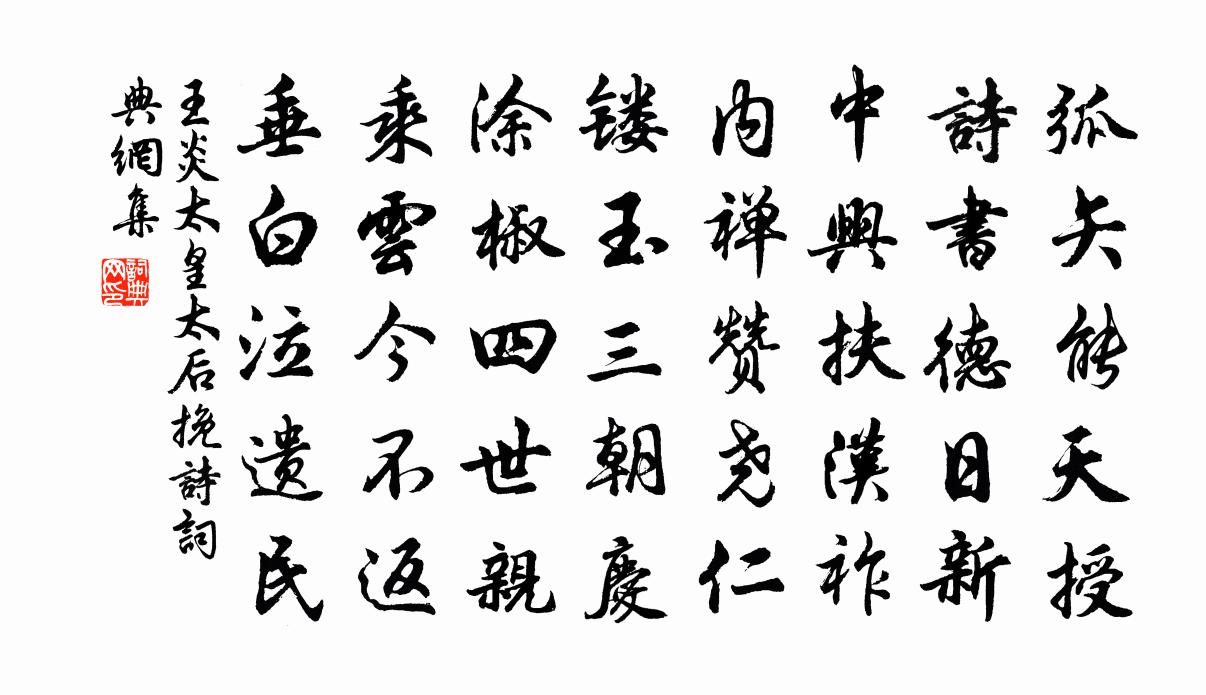 弧矢能天授
詩書德日新
中興扶漢祚
内禅赞尧仁
镂玉三朝慶
涂椒四世親
乘雲今不返
垂白泣遗民
王炎太皇太后挽詩詞
典網集
詞典网印